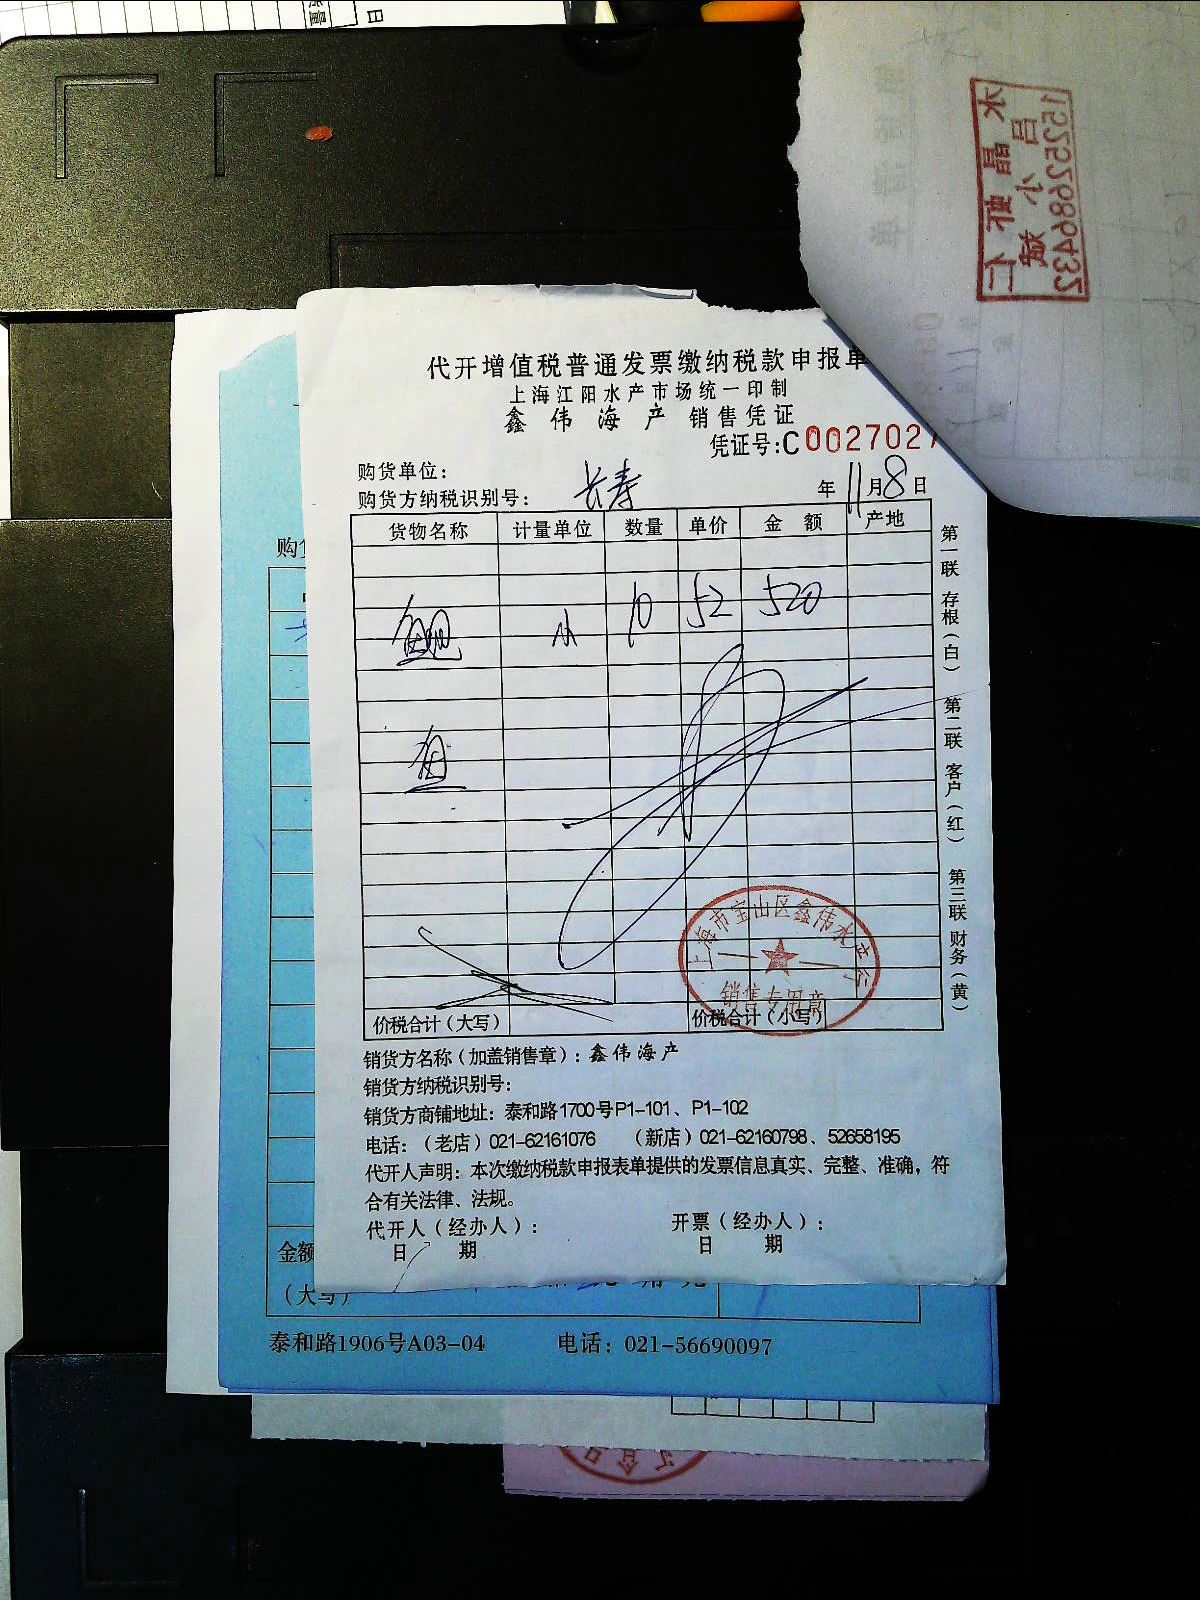 代开增值税普通发票缴纳税款申报单
上海江阳水产市场统一印制
鑫伟海产 销售凭证
凭证号:C0027027
购货单位:
购货方纳税识别号: 长寿 年 11月8日
货物名称 计量单位 数量 单价 金额 产地
小 10 52 520
鱼
第一联 存根(白) 第二联 客户(红) 第三联 财务(黄)
上海市宝山区鑫伟水产行
销售专用章
价税合计(大写) 价税合计(小写)
销货方名称(加盖销售章):鑫伟海产
销货方纳税识别号:
销货方商铺地址:泰和路1700号P1-101、P1-102
电话:(老店)021-62161076 (新店)021-62160798、52658195
代开人声明:本次缴纳税款申报表单提供的发票信息真实、完整、准确,符
合有关法律、法规。
代开人(经办人): 开票(经办人):
日 期 日 期
购
金额
(大写)
泰和路1906号A03-04 电话:021-56690097
15252686432